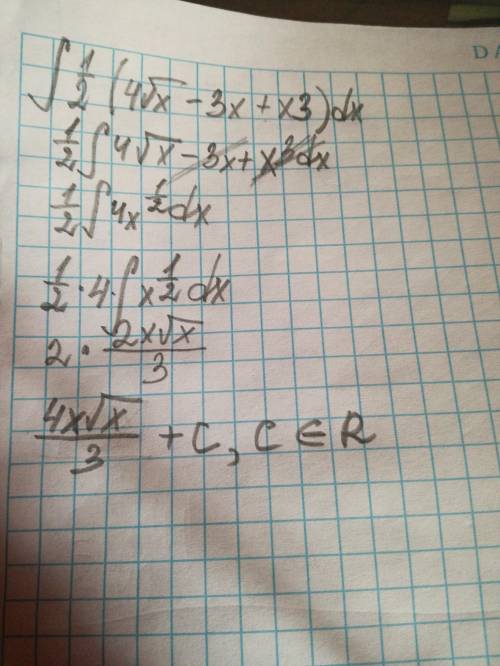 DA
∫ 1/2 (4√x - 3x + x3)dx
1/2 ∫ 4√x - 3x + x³dx
1/2 ∫ 4x^(1/2) dx
1/2 · 4 · ∫ x^(1/2) dx
2 · 2x√x/3
4x√x/3 + C, C ∈ R